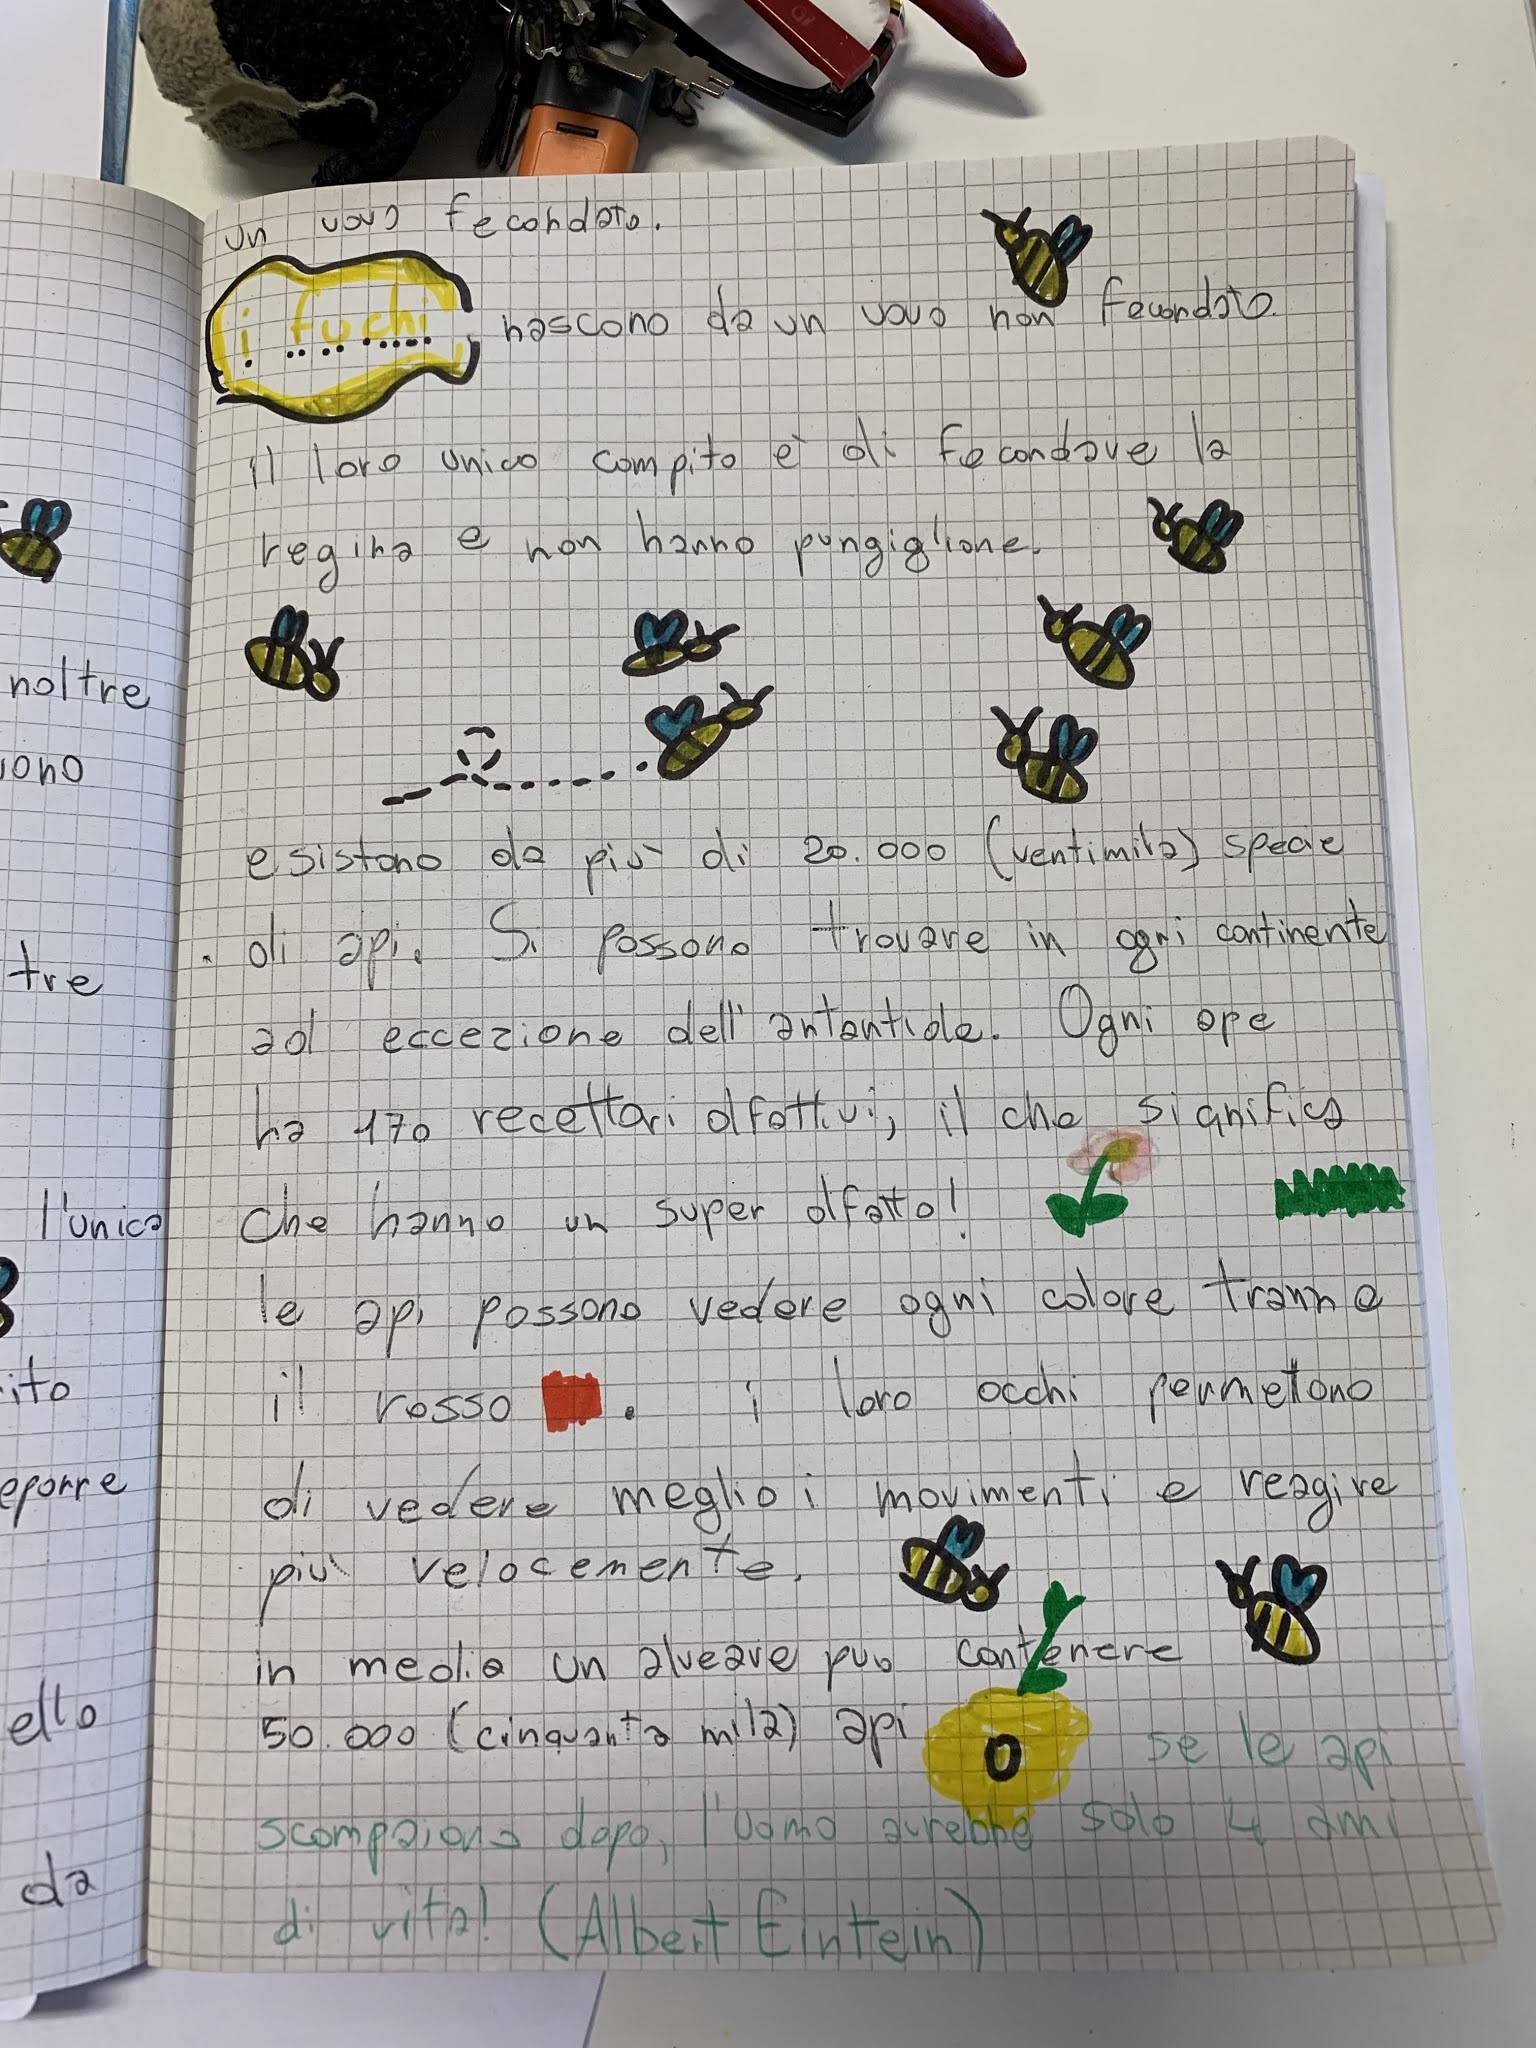 un uovo fecondato.
i fuchi nascono da un uovo non fecondato.
il loro unico compito è di fecondare la
regina e non hanno pungiglione.
noltre
ono
esistono da più di 20.000 (ventimila) specie
tre
di api. Si possono trovare in ogni continente
ad eccezione dell'antantide. Ogni ape
ha 170 recettori olfattivi, il che significa
l'unica
che hanno un super olfatto!
le api possono vedere ogni colore tranne
ito
il rosso . i loro occhi permetono
eporre
di vedere meglio i movimenti e reagire
più velocemente.
in media un alveare può contenere
ello
50.000 (cinquanta mila) api
se le api
da
scompaiono dopo, l'uomo avrebbe solo 4 anni
di vita! (Albert Eintein)